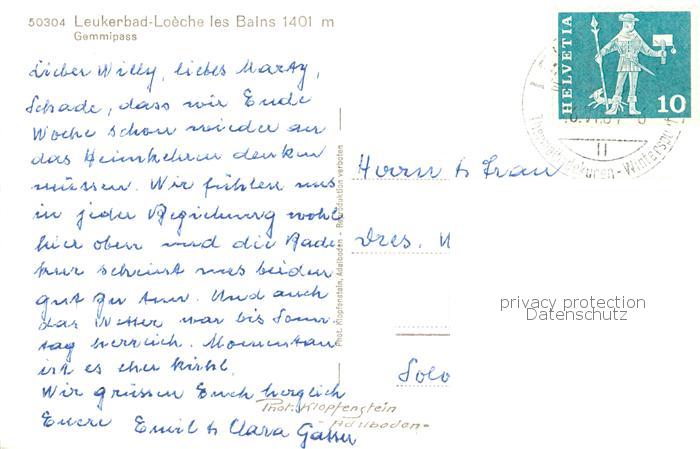 50304 Leukerbad-Loèche les Bains 1401 m
Gemmipass
HELVETIA
10
Lieber Willy, liebes Marty,
Schade, dass wir Ende
Woche schon wieder an
das Heimkehren denken
müssen. Wir fühlen uns
in jeder Beziehung wohl
hier oben und die Bade-
kur scheint uns beiden
gut zu tun. Und auch
das Wetter war bis Sonn-
tag herrlich. Momentan
ist es eher kühl.
Wir grüssen Euch herzlich
Eure Emil & Clara Gasser
Phot. Klopfenstein, Adelboden - Reproduktion verboten
Herrn & Frau
Dres.
Solo
Phot. Klopfenstein
Adelboden
privacy protection
Datenschutz